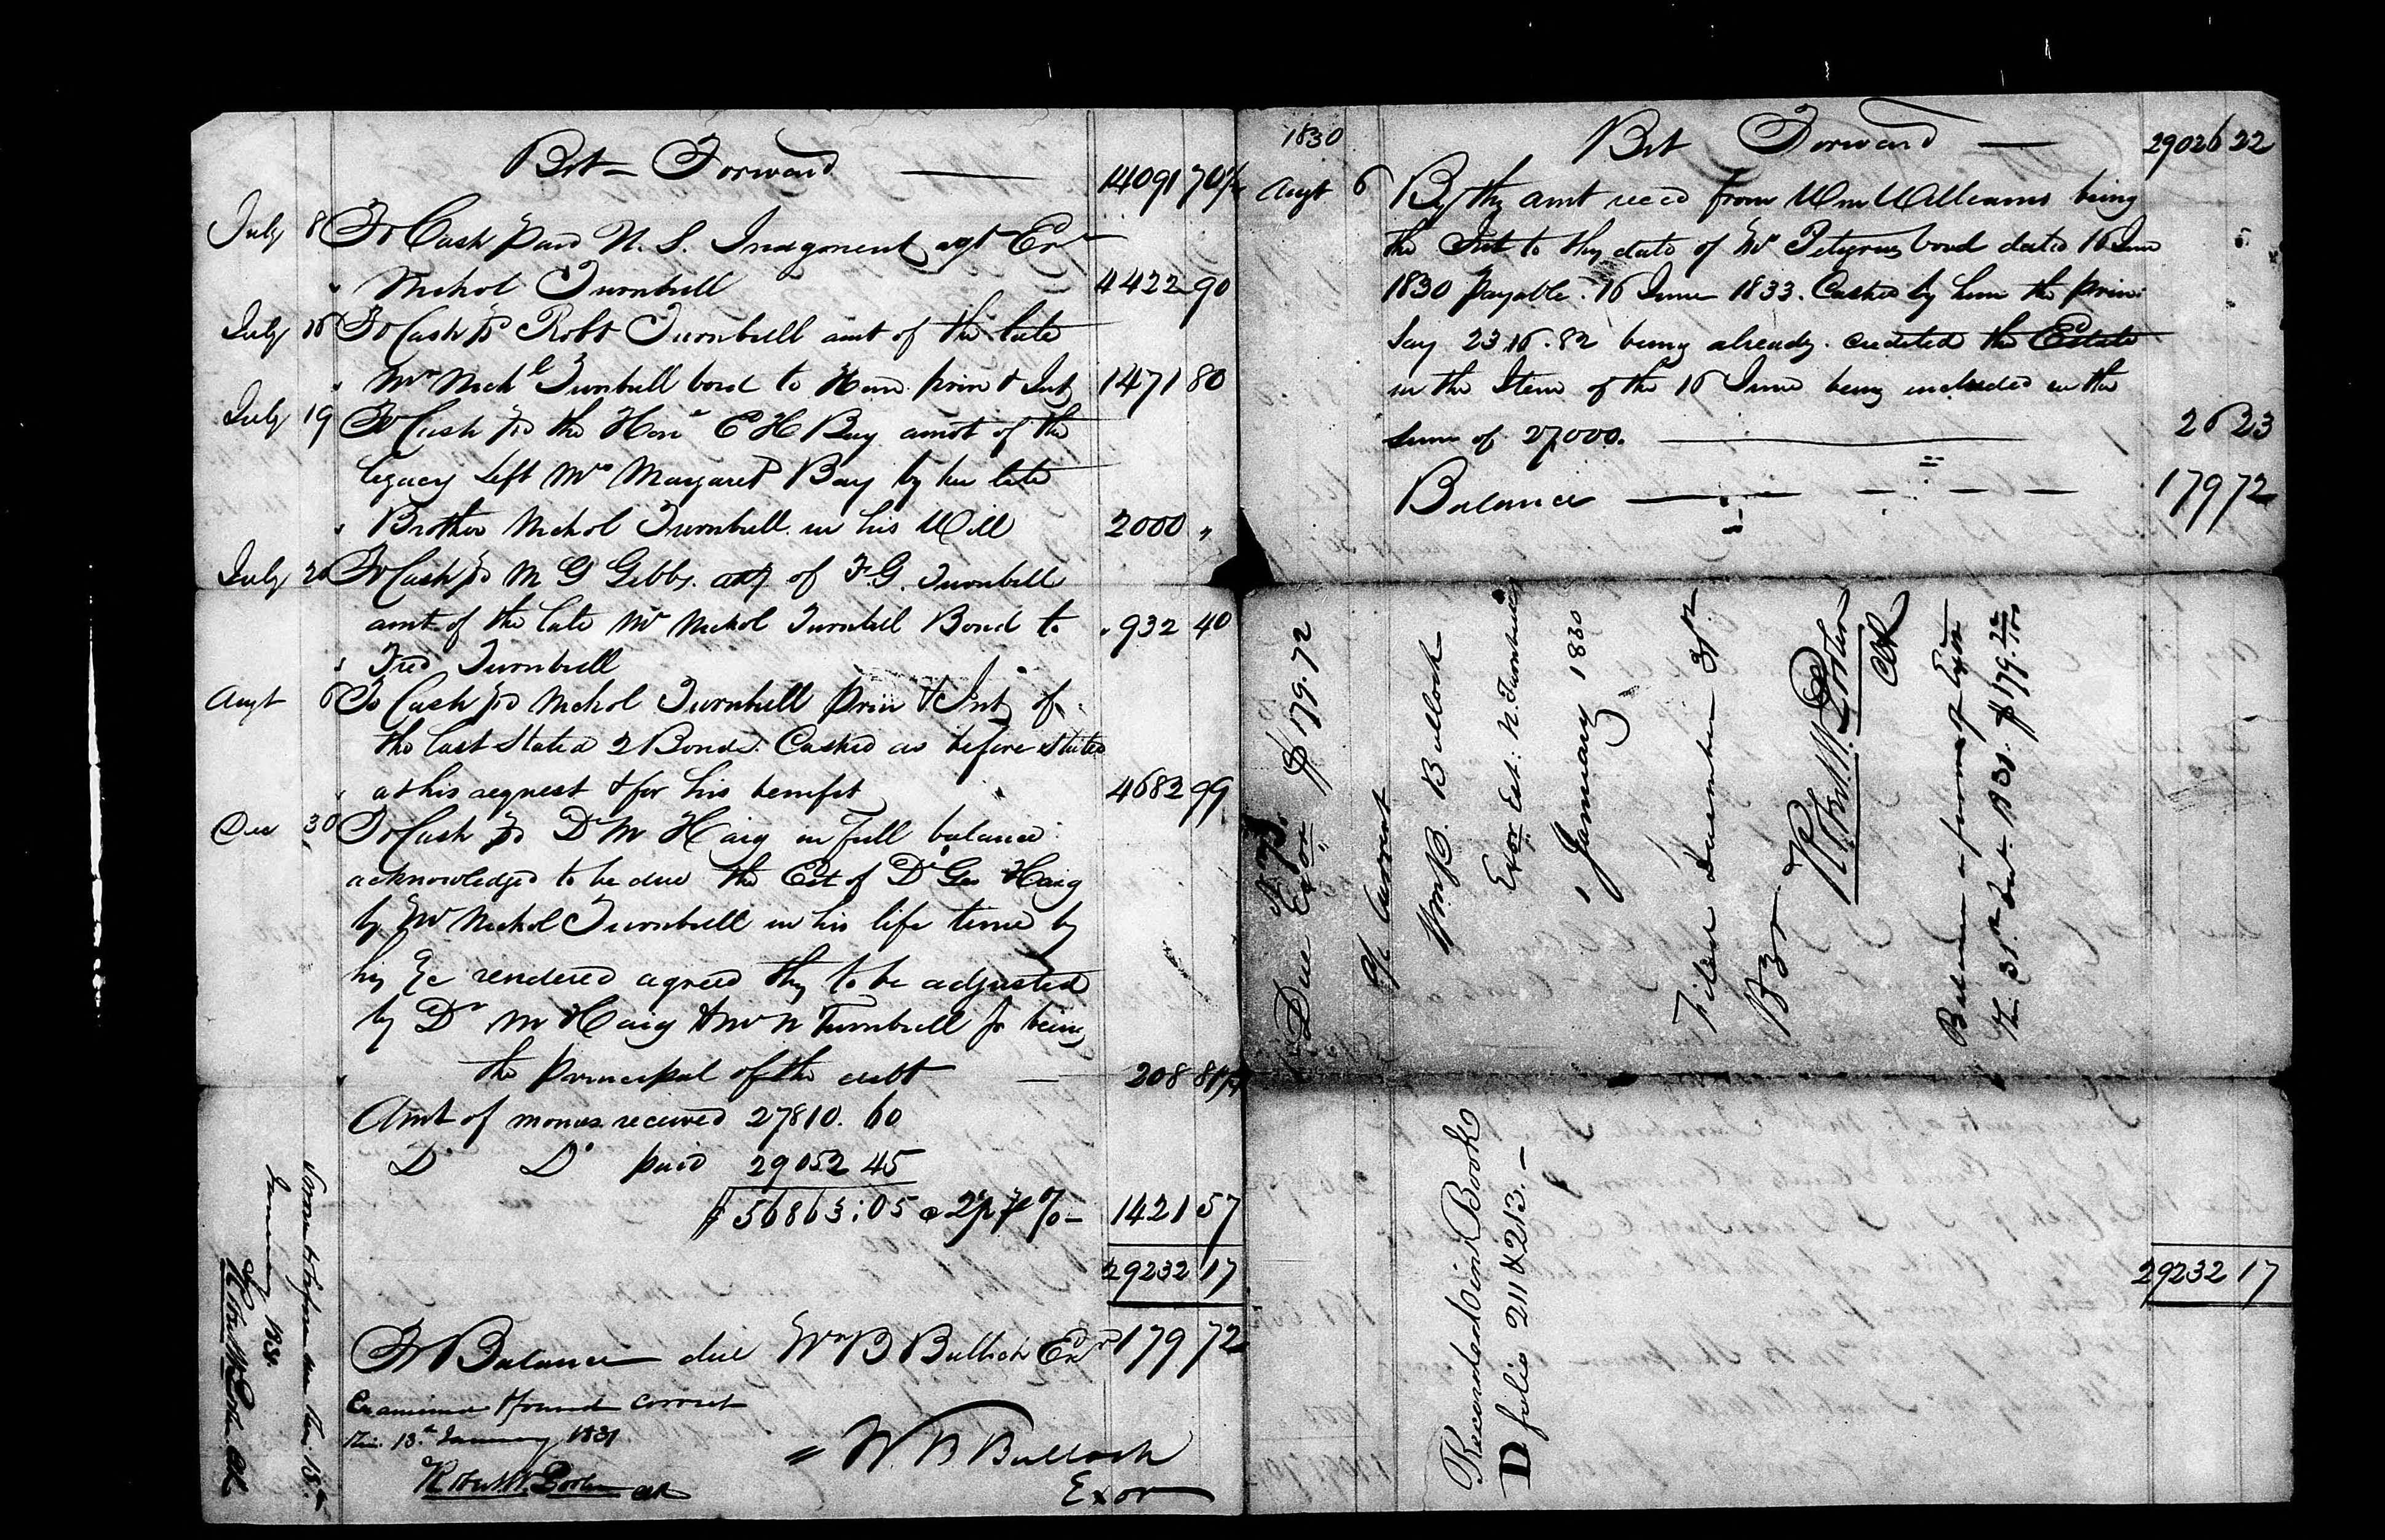 Bot Forward 14091 70 1/2
July 8 To Cash paid U. S. Judgment agt Exr
" Nichol Turnbull 4422 90
July 16 To Cash pd Robt Turnbull amt of the late
" Mr Nichl Turnbull bond to Him prin & Int 1471 80
July 19 To Cash pd the Hon E H Bay amot of the
legacy left Mrs Margaret Bay by her late
" Brother Nichol Turnbull in his Will 2000 "
July 20 To Cash pd M G Gibbs of F. G. Turnbull
amt of the late Mr Nichol Turnbull Bond to " 932 40
" Fred Turnbull
Augt 6 To Cash pd Nichol Turnbull prin & Int of
the last Stated 2 Bonds. Cashed as before stated
" at his request & for his benefit 4682 99
Dec 30 To Cash pd Dr M Haig in full balance
acknowledged to be due the Est of Dr Geo Haig
by Mr Nichol Turnbull in his life time by
his a/c rendered agreed thy to be adjusted
by Dr M Haig & Mr N Turnbull Jr being
the principal of the debt 208 81
Amt of monies received 27810. 60
Do Do paid 29052 45
$ 56863:05 @ 2 1/2 pr % 1421 57
29232 17
To Balance due Wm B Bulloch Exr 179 72
Examined & found correct
this 13th January 1831
Robt W. Pooler Clk
W B Bulloch
Exor
Sworn to before me this 13th
January 1831.
Robt W. Pooler Clk
1830 Bot Forward 29026 22
Augt 6 By thy amt reced from Wm Williams being
the Int to thy date of Mr Petegrus bond dated 16 June
1830 payable 16 June 1833. Cashed by him the prin:
Say 2316.82 being already credited the Estate
in the Item of the 16 June being included in the
sum of 27,000. 26 23
Balance 179 72
Due Exor $ 179.72
a/c Current
Wm B. Bulloch
Exor Est: N. Turnbull
1 January 1830
Filed December 31st
1830
Robt W. Pooler
Clk
Balance in favour of Exor
the 31st 1830. $ 179. 72/100
Recorded in Book
D folio 211 & 213.